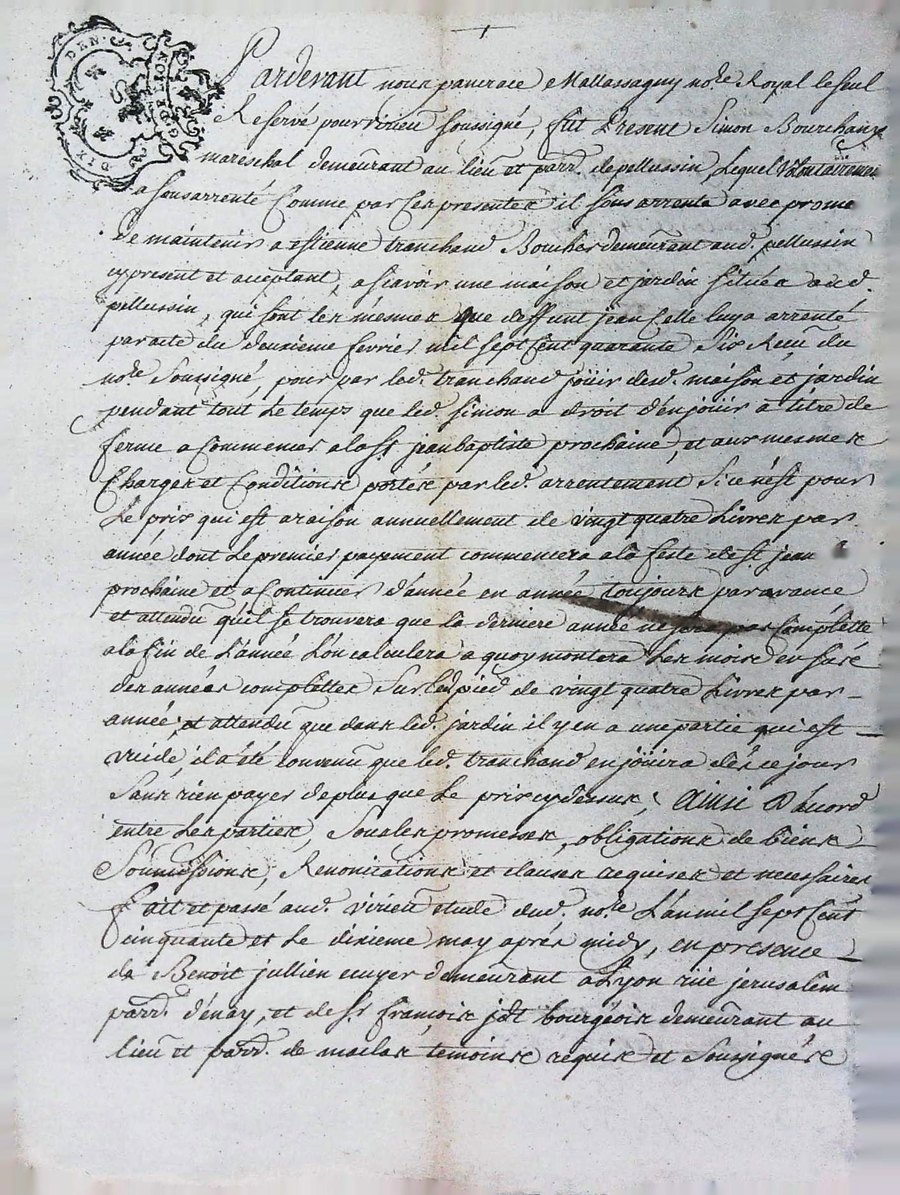 DEN.
G. DE LION
DIX
Pardevant nous pancrace Mallassagny no.re Royal le seul
Reservé pour virieu soussigné, fut Present Simon Bourchanx
mareschal demeurant au lieu et parr. de pellussin Lequel Volontairemen
a sousarrenté Comme par Ces presentes il sous arrente avec prome
de maintenir a estienne tranchand Boucher demeurant aud. pellussin
cy present et acceptant, a scavoir une maison et jardin situés aud.
pellussin, qui sont les mesmes que deffunt jean Celle luy a arrenté
par acte du deuxieme fevrier mil sept Cent quarante Six Reçu du
no.re Soussigné, pour par led. tranchand joüir desd. maison et jardin
pendant tout le temps que led. Simon a droit d'en joüir a titre de
ferme a Commencer a la s.t jean baptiste prochaine, et aux mesmes
Charges et Conditions portés par led. arrentement Si ce n'est pour
Le prix qui est a raison annuellement de vingt quatre Livres par
année dont Le premier payement commencera a la feste de s.t jean
prochaine et a Continuer d'année en année toujours par avance
et attendu qu'il se trouvera que la derniere année ne sera pas Complette
a la fin de L'année L'on calculera a quoy montera Les mois en sus
des années complettes Sur led. pied de vingt quatre Livres par
année; et attendu que dans led. jardin il y en a une partie qui est
vuide il a été Convenu que led. tranchand en joüira dés ce jour
Sans rien payer de plus que Le prix cy dessus; Ainsi D'acord
entre Les parties, Sous les promesses, obligations de biens
Soumissions, Renonciations et clauses requises et necessaires
Fait et passé aud. virieu étude dud. no.re L'an mil sept Cent
cinquante et Le dixieme may aprés midy, en presence
de Benoit jullien ecuyer demeurant a Lyon rüe jerusalem
parr. d'énay, et de s.r francois jdt bourgeois demeurant au
lieu et parr. de maclas temoins requis et Soussignés